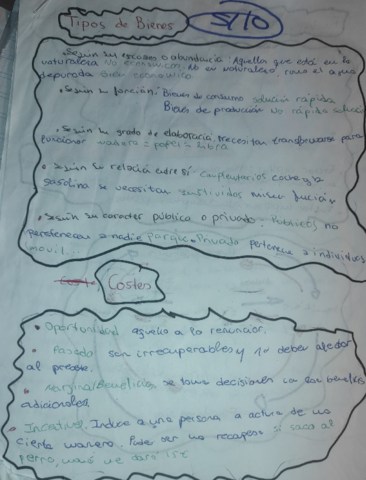 Tipos de Bienes
• Según su escases o abundancia: Aquellos que está en la
naturaleza No económicos. No en naturaleza como el agua
depurada bien económico
• Según su función: Bienes de consumo solución rápida
Bienes de producción No rápida solución
• Según su grado de elaboración: necesitan transformarse para
funcionar madera = papel = libro
• Según su relación entre sí - Complentarios coche y la
gasolina se necesitan sustividos misma función
• Según su caracter pública o privado - Publicos no
pertenecen a nadie parque • Privado pertenece a individuos
movil...
Costes
• Oportunidad aquello a lo renunciar.
• Pasado son irrecuperables y no deben afectar
al presente.
• Marginal/Beneficio se toma decisiones con los beneficios
adicionales.
• Incentivos. Induce a una persona a actuar de una
cierta manera. Puede ser una recompensa si saco al
perro, mamá me dará 15€